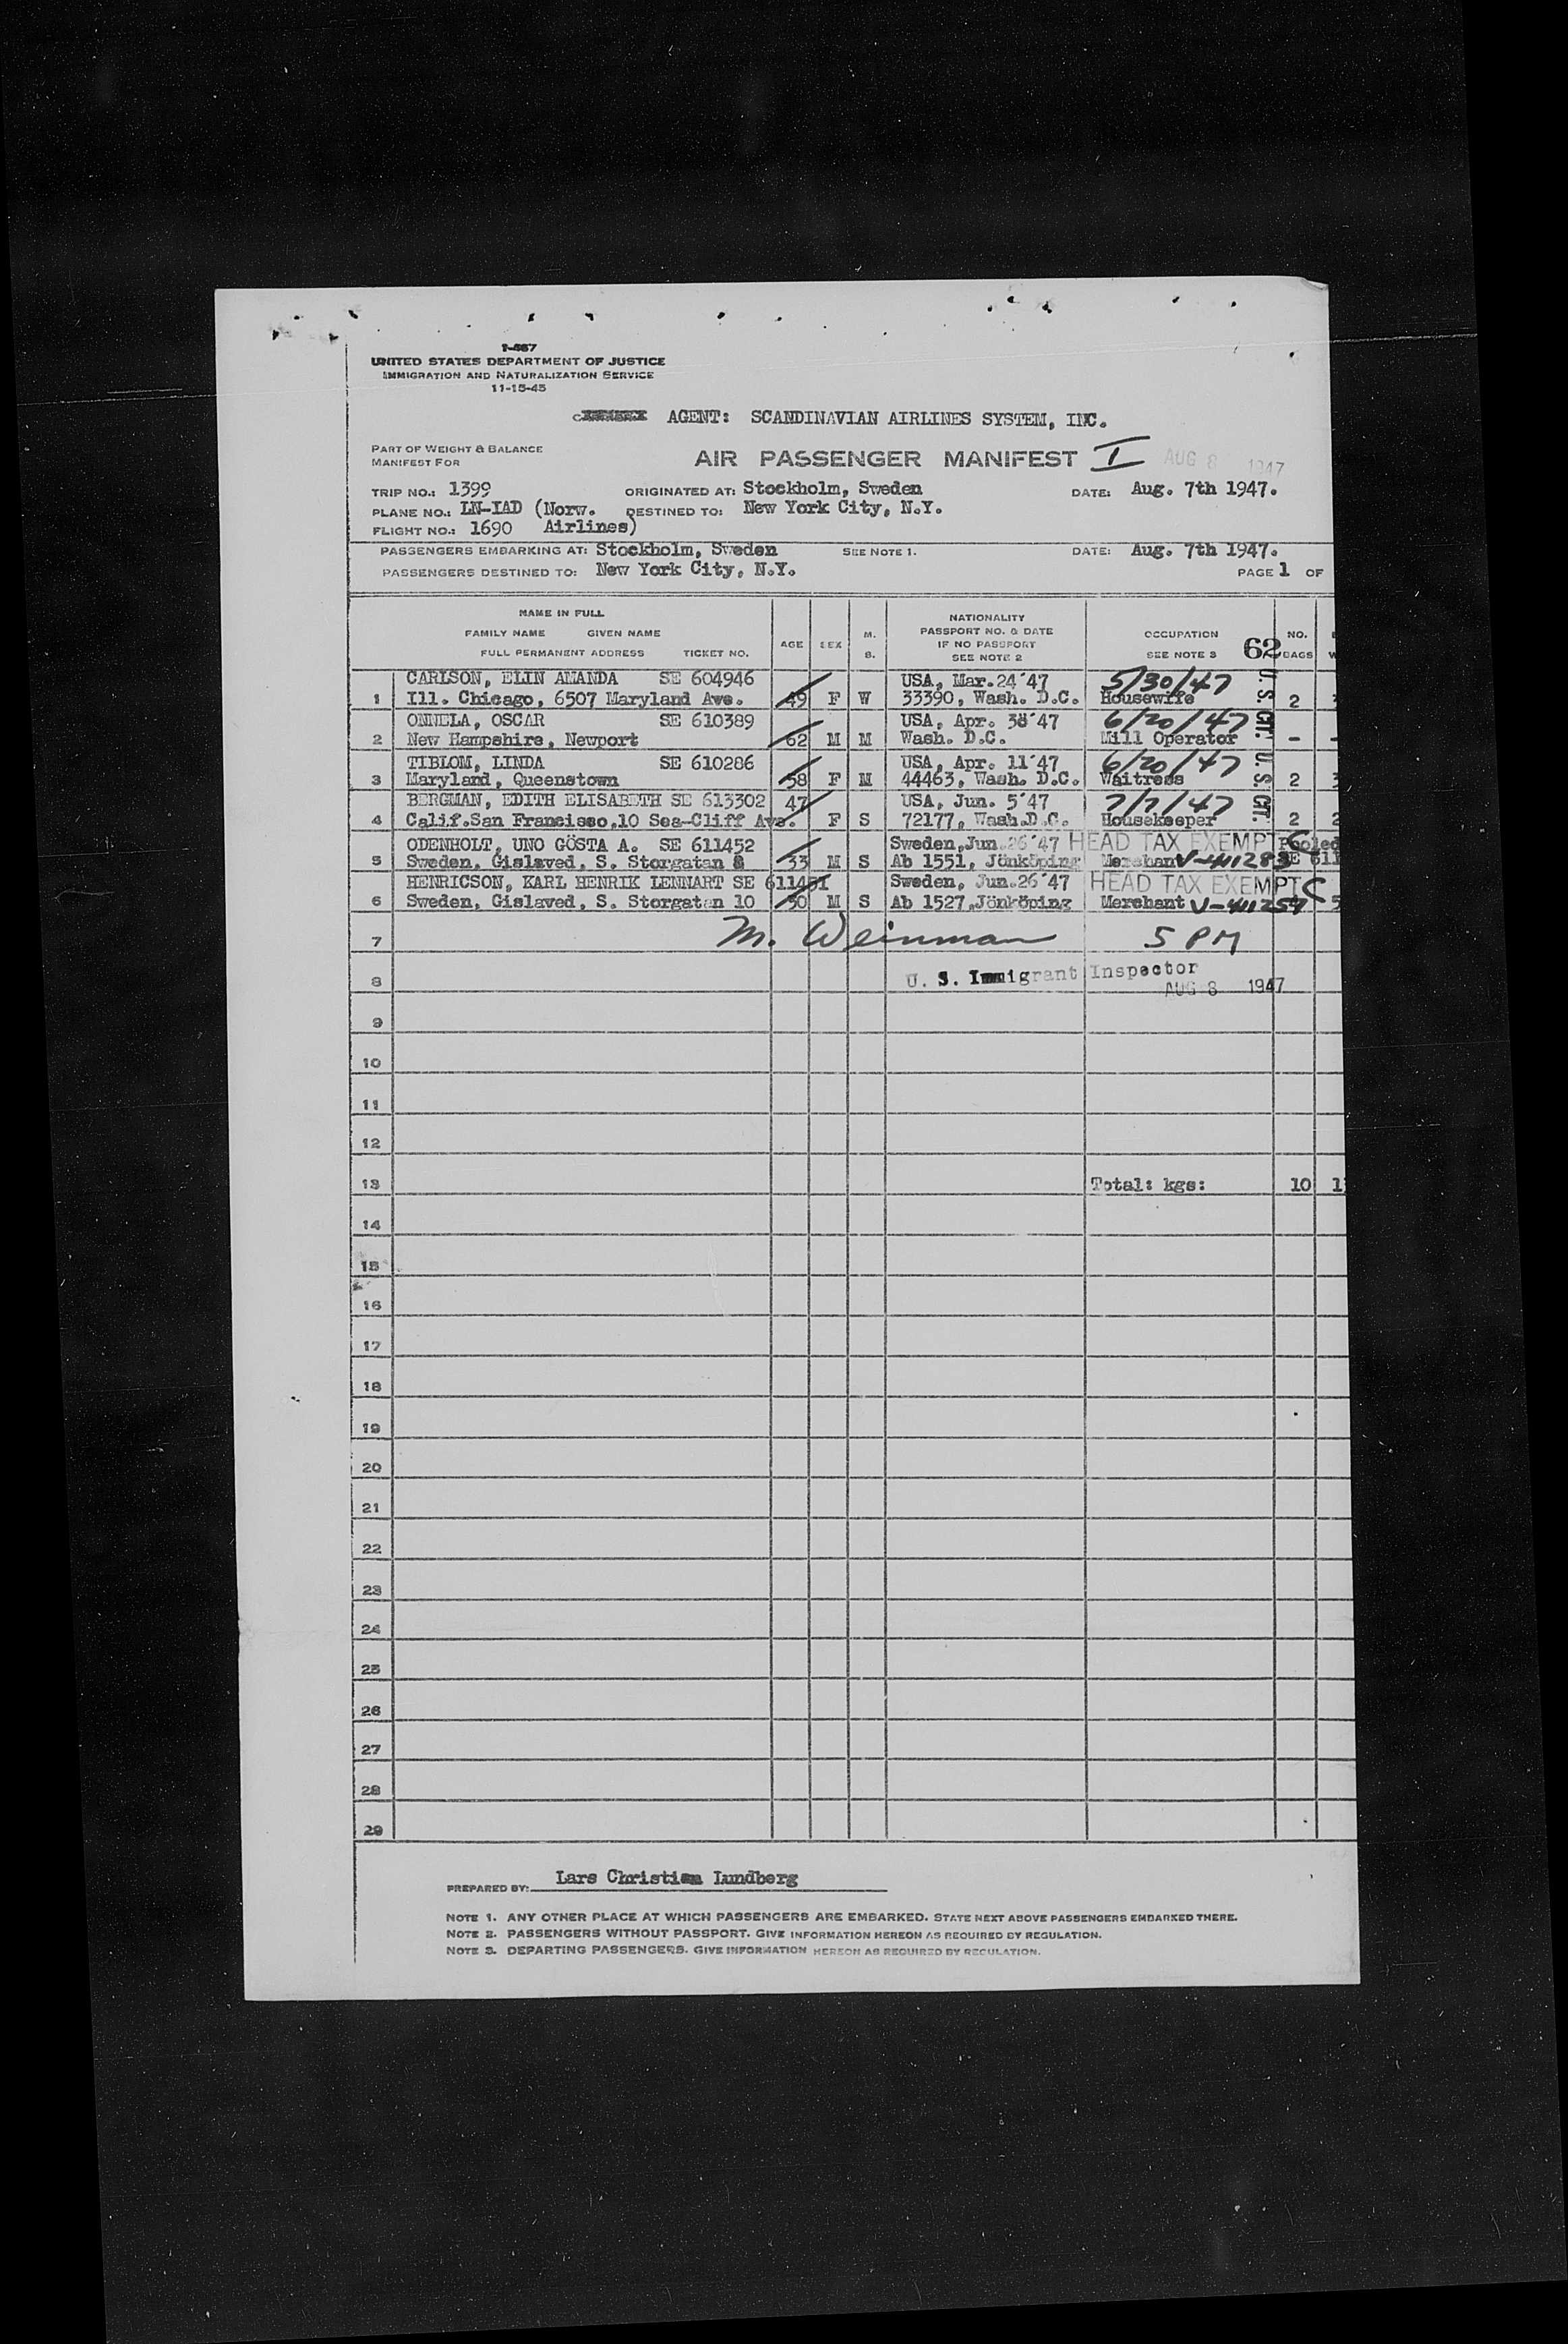 I-467
UNITED STATES DEPARTMENT OF JUSTICE
IMMIGRATION AND NATURALIZATION SERVICE
11-15-45
AGENT: SCANDINAVIAN AIRLINES SYSTEM, INC.
PART OF WEIGHT & BALANCE
MANIFEST FOR
AIR PASSENGER MANIFEST I AUG 8 1947
TRIP NO.: 1399 ORIGINATED AT: Stockholm, Sweden DATE: Aug. 7th 1947.
PLANE NO.: LN-IAD (Norw. DESTINED TO: New York City, N.Y.
FLIGHT NO.: 1690 Airlines)
PASSENGERS EMBARKING AT: Stockholm, Sweden SEE NOTE 1. DATE: Aug. 7th 1947.
PASSENGERS DESTINED TO: New York City, N.Y. PAGE 1 OF
NAME IN FULL
FAMILY NAME GIVEN NAME
FULL PERMANENT ADDRESS TICKET NO.
AGE SEX M. S.
NATIONALITY
PASSPORT NO. & DATE
IF NO PASSPORT
SEE NOTE 2
OCCUPATION
SEE NOTE 3 62
NO. BAGS
CARLSON, ELIN AMANDA SE 604946 USA, Mar.24'47 5/30/47 U.S. CT.
1 Ill. Chicago, 6507 Maryland Ave. 49 F W 33390, Wash. D.C. Housewife 2
ONNELA, OSCAR SE 610389 USA, Apr. 38'47 6/20/47
2 New Hampshire, Newport 62 M M Wash. D.C. Mill Operator - -
TIBLOM, LINDA SE 610286 USA, Apr. 11'47 6/20/47 U.S. CT.
3 Maryland, Queenstown 58 F M 44463, Wash. D.C. Waitress 2
BERGMAN, EDITH ELISABETH SE 613302 47 USA, Jun. 5'47 7/7/47
4 Calif.San Francisso,10 Sea-Cliff Ave. F S 72177, Wash.D.C. Housekeeper 2
ODENHOLT, UNO GÖSTA A. SE 611452 Sweden,Jun.26'47 HEAD TAX EXEMPT Pooled
5 Sweden, Gislaved, S. Storgatan 8 33 M S Ab 1551, Jönköping Merchant V-411283 SE 611
HENRICSON, KARL HENRIK LENNART SE 611451 Sweden, Jun.26'47 HEAD TAX EXEMPT C
6 Sweden, Gislaved, S. Storgatan 10 30 M S Ab 1527,Jönköping Merchant 5
7 M. Weinman 5 PM
8 U. S. Immigrant Inspector
AUG 8 1947
9
10
11
12
13 Total: kgs: 10
14
15
16
17
18
19
20
21
22
23
24
25
26
27
28
29
PREPARED BY: Lars Christian Lundberg
NOTE 1. ANY OTHER PLACE AT WHICH PASSENGERS ARE EMBARKED. STATE NEXT ABOVE PASSENGERS EMBARKED THERE.
NOTE 2. PASSENGERS WITHOUT PASSPORT. GIVE INFORMATION HEREON AS REQUIRED BY REGULATION.
NOTE 3. DEPARTING PASSENGERS. GIVE INFORMATION HEREON AS REQUIRED BY REGULATION.